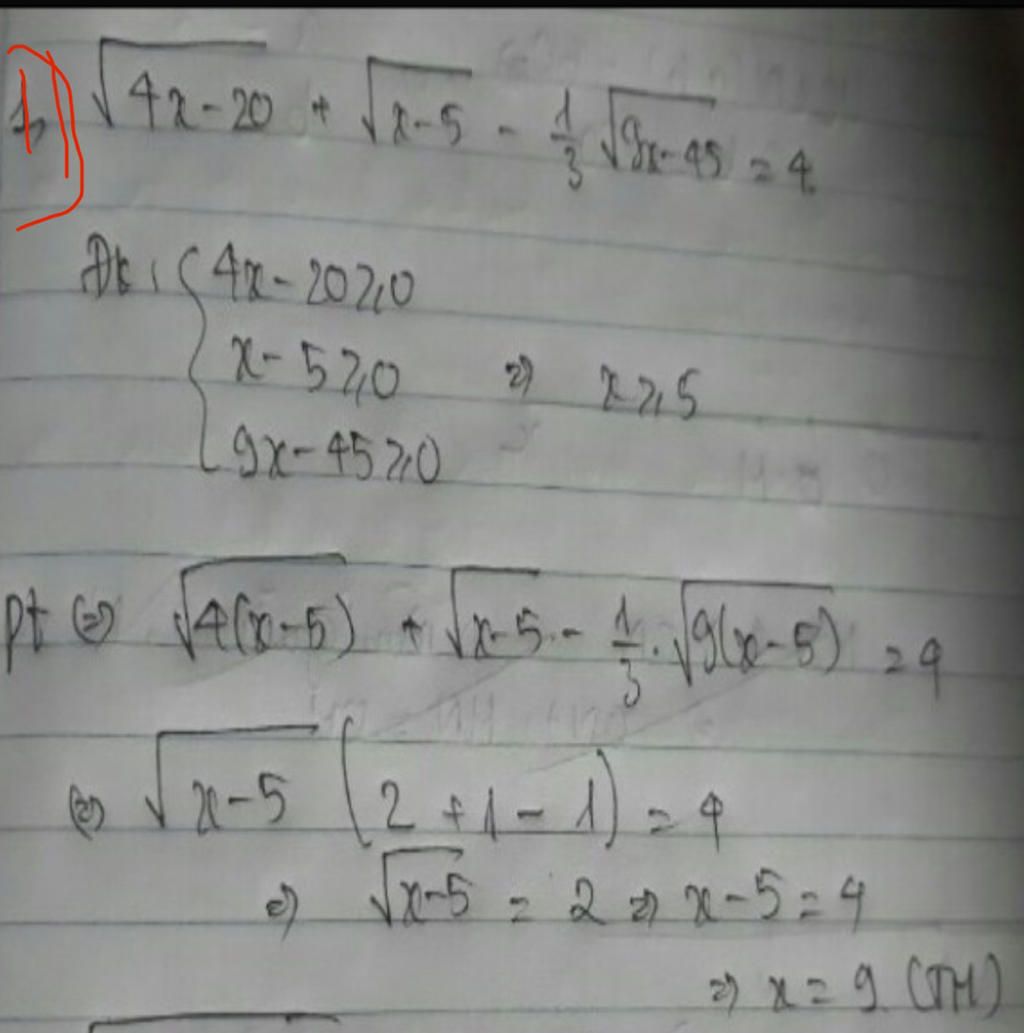 1) √(4x-20) + √(x-5) - 1/3 √(9x-45) = 4
Đk: { 4x - 20 ≥ 0
x - 5 ≥ 0 ⇒ x ≥ 5
9x - 45 ≥ 0
pt ⇔ √(4(x-5)) + √(x-5) - 1/3 · √(9(x-5)) = 4
⇔ √(x-5) (2 + 1 - 1) = 4
⇒ √(x-5) = 2 ⇒ x - 5 = 4
⇒ x = 9 (TM)